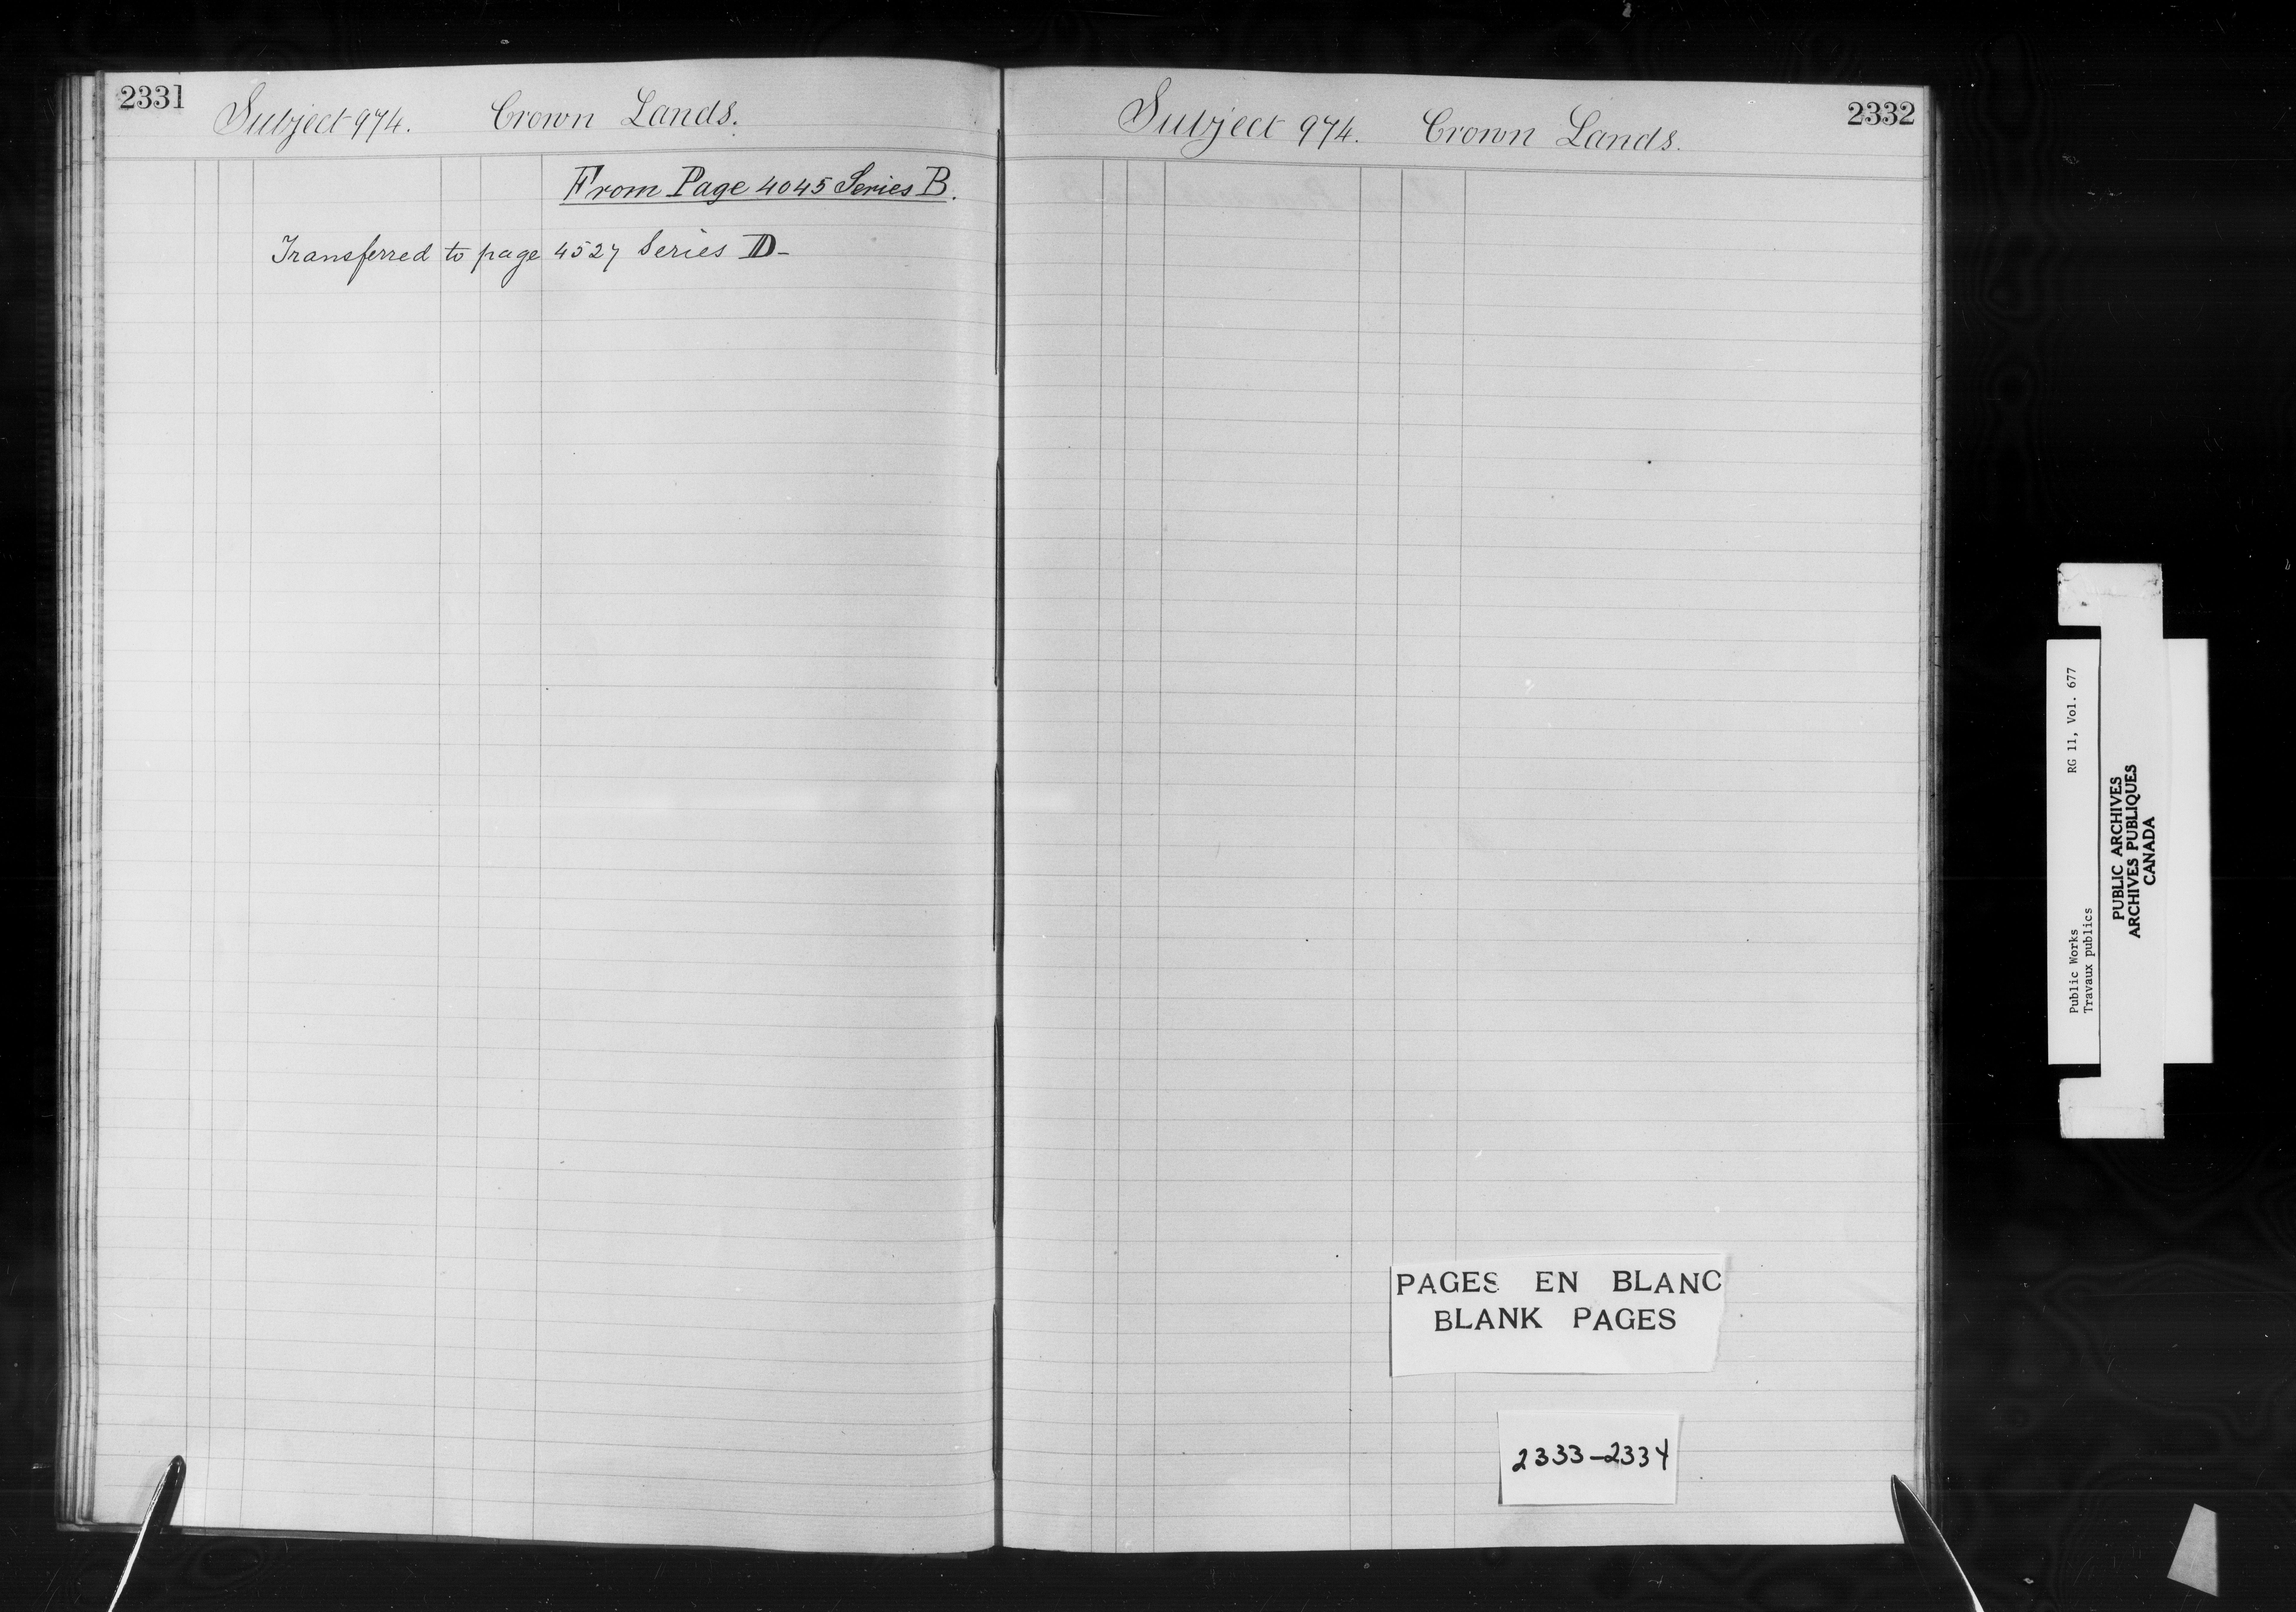 2331
Subject 974. Crown Lands.
From Page 4045 Series B.
Transferred to page 4527 Series D-
2332
Subject 974. Crown Lands.
PAGES EN BLANC
BLANK PAGES
2333-2334
Public Works RG 11, Vol. 677
Travaux publics
PUBLIC ARCHIVES
ARCHIVES PUBLIQUES
CANADA